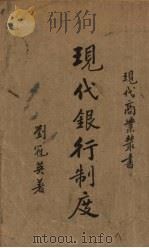 現代商業叢書
現代銀行制度
劉冠英著